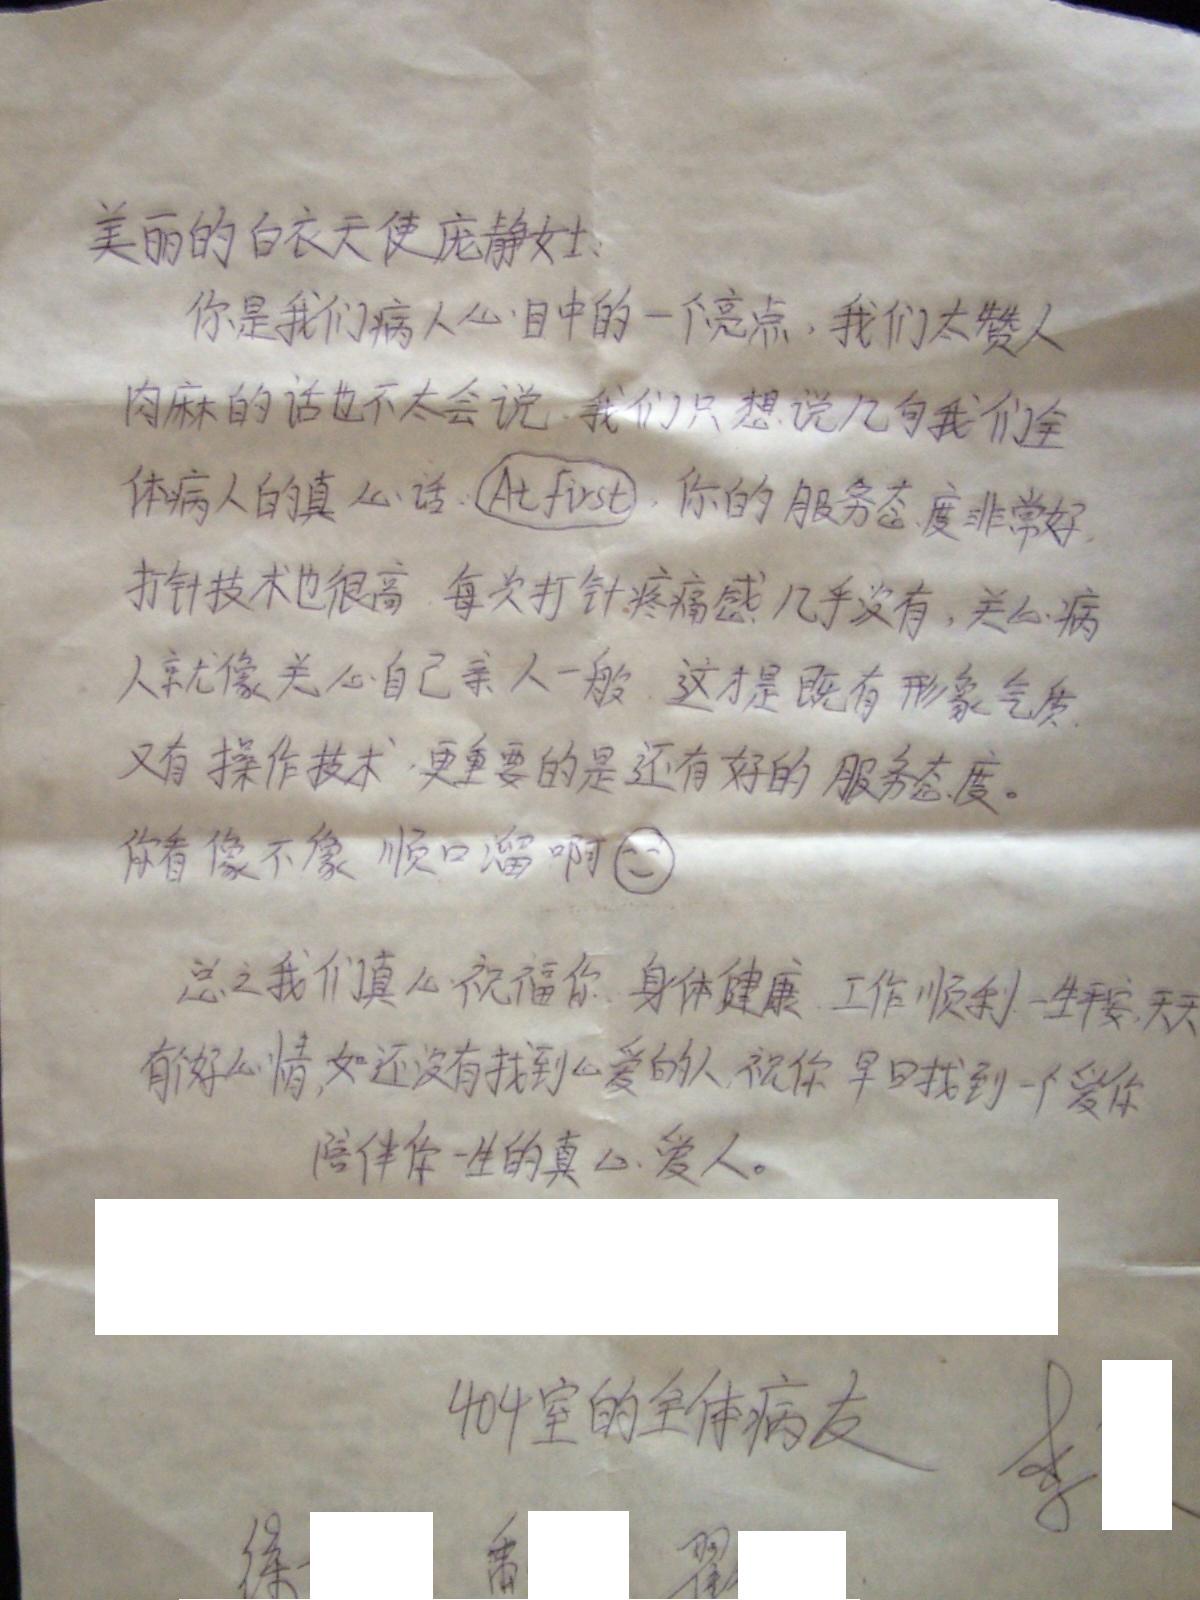 美丽的白衣天使庞静女士:
你是我们病人心目中的一个亮点,我们太赞人
肉麻的话也不太会说.我们只想说几句我们全
体病人的真心话.At first.你的服务态度非常好.
打针技术也很高.每次打针疼痛感几乎没有,关心病
人就像关心自己亲人一般.这才是既有形象气质.
又有操作技术,更重要的是还有好的服务态度。
你看像不像顺口溜啊
总之我们真心祝福你.身体健康.工作顺利.一生平安.天天
有好心情,如还没有找到心爱的人.祝你早日找到一个爱你
陪伴你一生的真心爱人。
404室的全体病友
李
徐 番 翟